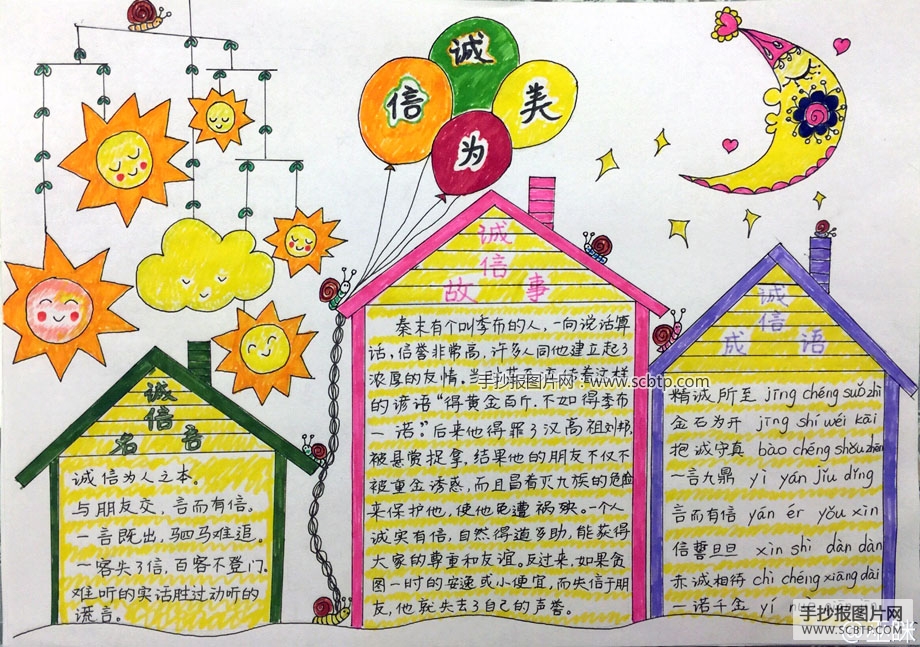 诚
信
美
为
诚
信
故 事
秦末有个叫季布的人，一向说话算
话，信誉非常高，许多人同他建立起了
浓厚的友情。当时甚至流传着这样
的谚语“得黄金百斤，不如得季布
一诺。”后来他得罪了汉高祖刘邦，
被悬赏捉拿，结果他的朋友不仅不
被重金诱惑，而且冒着灭九族的危险
来保护他，使他免遭祸殃。一个人
诚实有信，自然得道多助，能获得
大家的尊重和友谊。反过来，如果贪
图一时的安逸或小便宜，而失信于朋
友，他就失去了自己的声誉。
手抄报图片网：www.scbtp.com
诚
信
名 言
诚信为人之本。
与朋友交，言而有信。
一言既出，驷马难追。
一客失了信，百客不登门。
难听的实话胜过动听的
谎言。
诚
信
成 语
精诚所至 jīng chéng suǒ zhì
金石为开 jīng shí wéi kāi
抱诚守真 bào chéng shǒu zhēn
一言九鼎 yì yán jiǔ dǐng
言而有信 yán ér yǒu xìn
信誓旦旦 xìn shì dàn dàn
赤诚相待 chì chéng xiāng dài
一诺千金 yí
手抄报图片网
WWW.SCBTP.COM